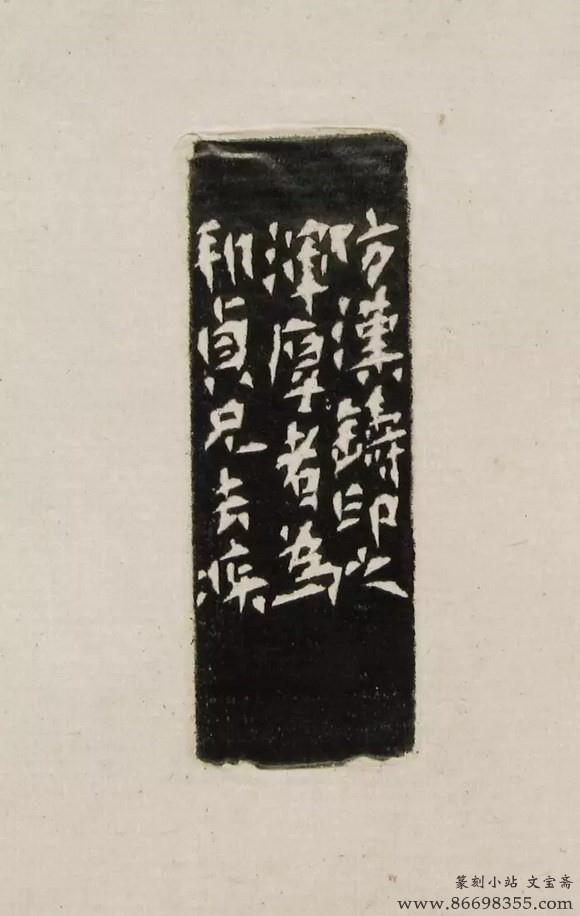 仿漢鑄印之
渾厚者為
利貞兄去疾
篆刻小站 文宝斋
www.86698355.com